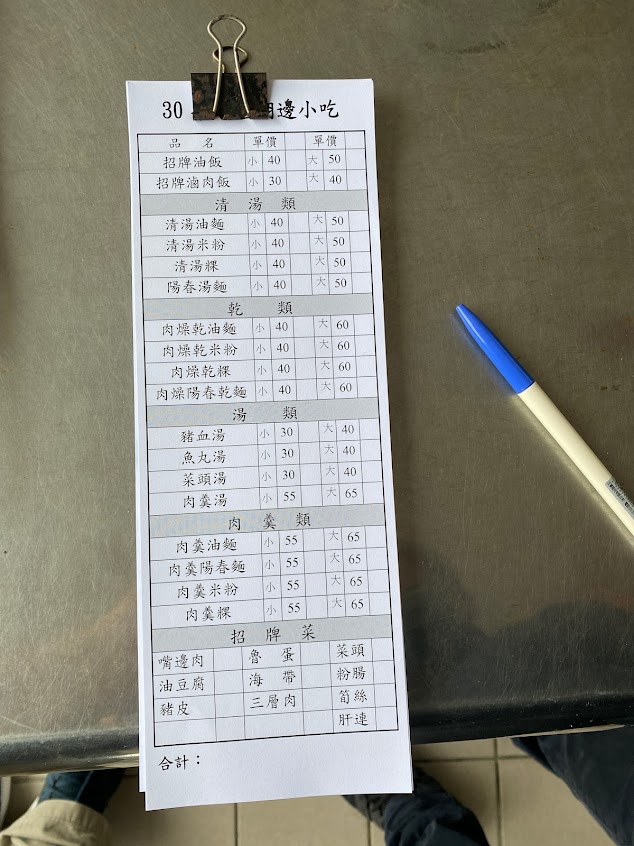 30 邊小吃
品 名 單價 單價
招牌油飯 小 40 大 50
招牌滷肉飯 小 30 大 40
清 湯 類
清湯油麵 小 40 大 50
清湯米粉 小 40 大 50
清湯粿 小 40 大 50
陽春湯麵 小 40 大 50
乾 類
肉燥乾油麵 小 40 大 60
肉燥乾米粉 小 40 大 60
肉燥乾粿 小 40 大 60
肉燥陽春乾麵 小 40 大 60
湯 類
豬血湯 小 30 大 40
魚丸湯 小 30 大 40
菜頭湯 小 30 大 40
肉羹湯 小 55 大 65
肉 羹 類
肉羹油麵 小 55 大 65
肉羹陽春麵 小 55 大 65
肉羹米粉 小 55 大 65
肉羹粿 小 55 大 65
招 牌 菜
嘴邊肉 魯 蛋 菜頭
油豆腐 海 帶 粉腸
豬皮 三層肉 筍絲
肝連
合計：